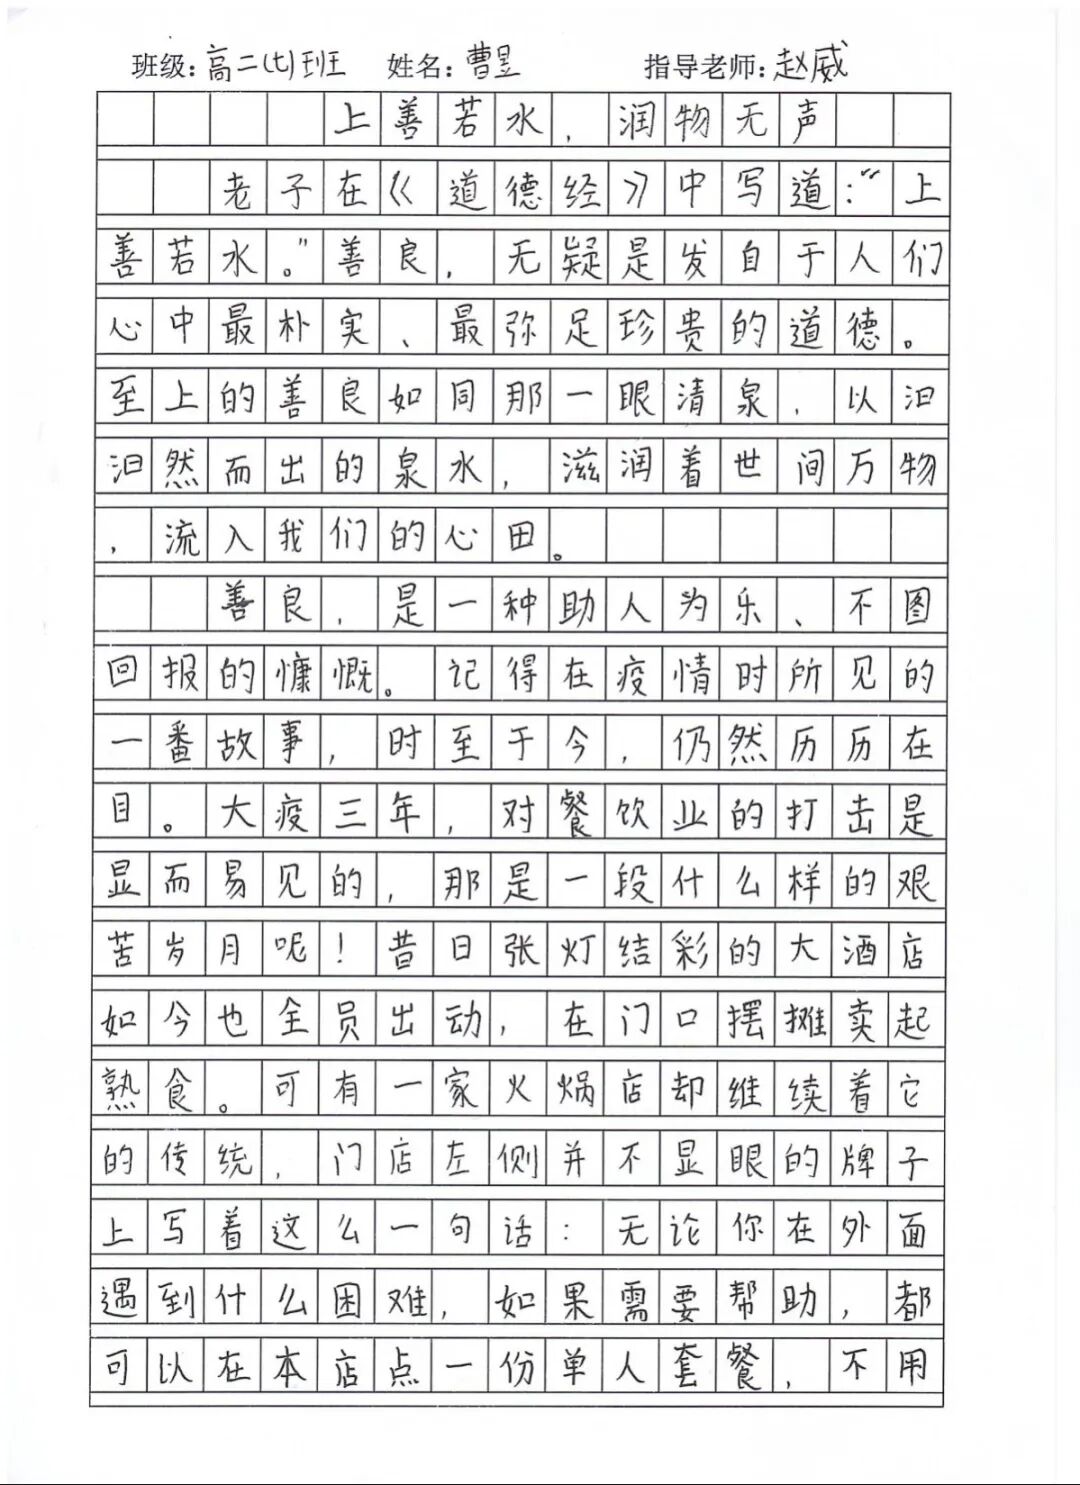 班级:高二(七)班 姓名:曹昱 指导老师:赵威
上善若水,润物无声
老子在《道德经》中写道:“上
善若水。”善良,无疑是发自于人们
心中最朴实、最弥足珍贵的道德。
至上的善良如同那一眼清泉,以汩
汩然而出的泉水,滋润着世间万物
,流入我们的心田。
善良,是一种助人为乐、不图
回报的慷慨。记得在疫情时所见的
一番故事,时至于今,仍然历历在
目。大疫三年,对餐饮业的打击是
显而易见的,那是一段什么样的艰
苦岁月呢!昔日张灯结彩的大酒店
如今也全员出动,在门口摆摊卖起
熟食。可有一家火锅店却维续着它
的传统,门店左侧并不显眼的牌子
上写着这么一句话:无论你在外面
遇到什么困难,如果需要帮助,都
可以在本店点一份单人套餐,不用